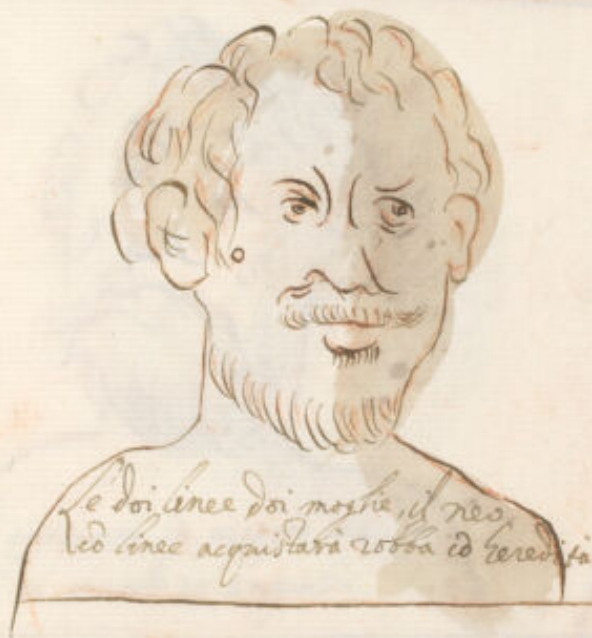 Le doi linee doi moglie, il neo
cō linee acquistarà robba cō heredità